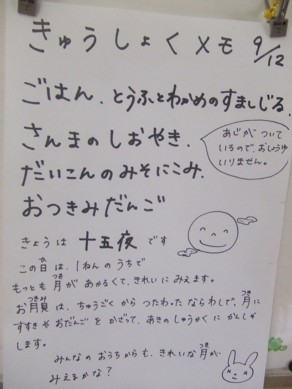 きゅうしょくメモ 9/12
ごはん、とうふとわかめのすましじる、
さんまのしおやき、
だいこんのみそにこみ、
おつきみだんご
あじが ついて
いるので、おしょうゆ
いりません。
きょうは 十五夜 です
この日は、1ねんのうちで
もっとも月が あかるくて、きれいに みえます。
お月見は、ちゅうごくから つたわった ならわしで、月に
すすきや おだんごを かざって、あきの しゅうかくに かんしゃ
します。
みんなの おうちからも、きれいな月が
みえるかな?